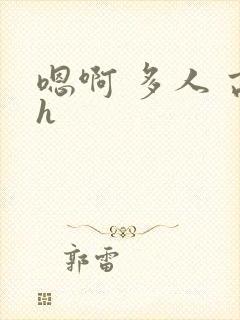 嗯啊 多人 古
h
郭雷